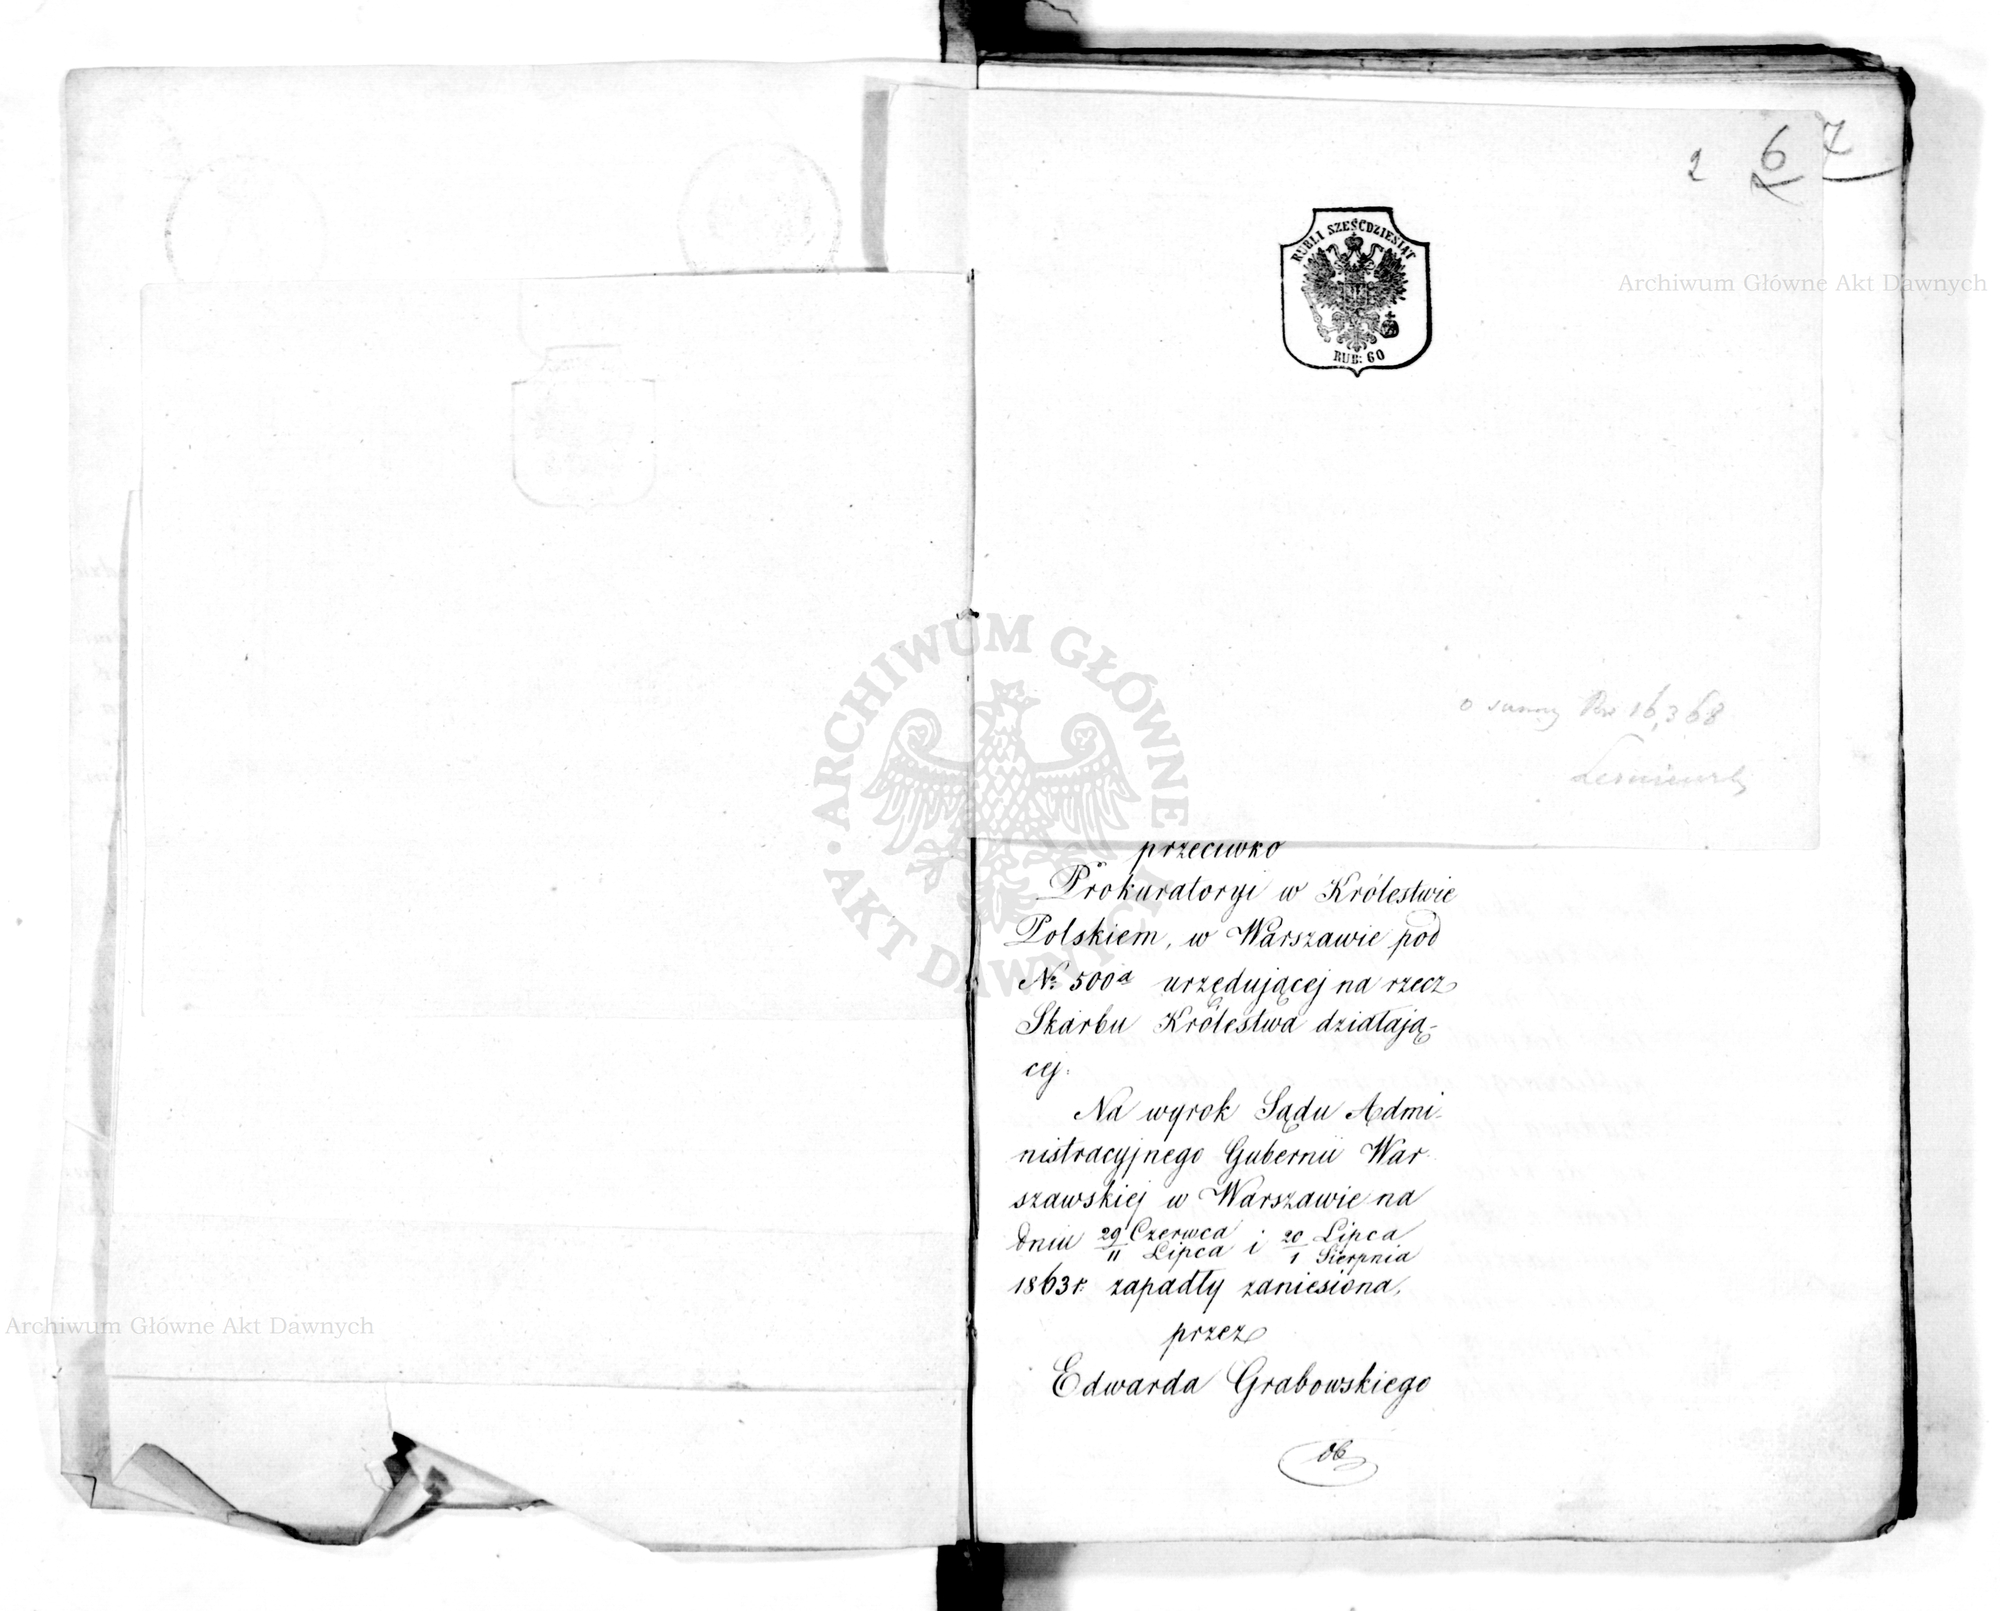 2 6 7
RUBLI SZEŚĆDZIESIĄT
RUB: 60
Archiwum Główne Akt Dawnych
o summy 16,368
ARCHIWUM GŁÓWNE AKT DAWNYCH
przeciwko
Prokuratoryi w Królestwie
Polskiem, w Warszawie pod
№ 500a urzędującej na rzecz
Skarbu Królestwa działają-
cej.
Na wyrok Sądu Admi-
nistracyjnego Gubernii War
szawskiej w Warszawie na
dniu 29 Czerwca / 11 Lipca i 20 Lipca / 1 Sierpnia
1863 r. zapadły zaniesiona,
przez
Edwarda Grabowskiego
Archiwum Główne Akt Dawnych